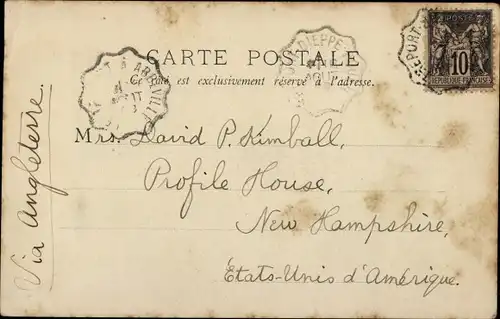 CARTE POSTALE
Ce côté est exclusivement réservé à l'adresse.
POSTE
10
RÉPUBLIQUE FRANÇAISE
PORT
DIEPPE
AOUT
ABBEVILLE
Via Angleterre
Mrs. David P. Kimball,
Profile House,
New Hampshire,
États-Unis d'Amérique.